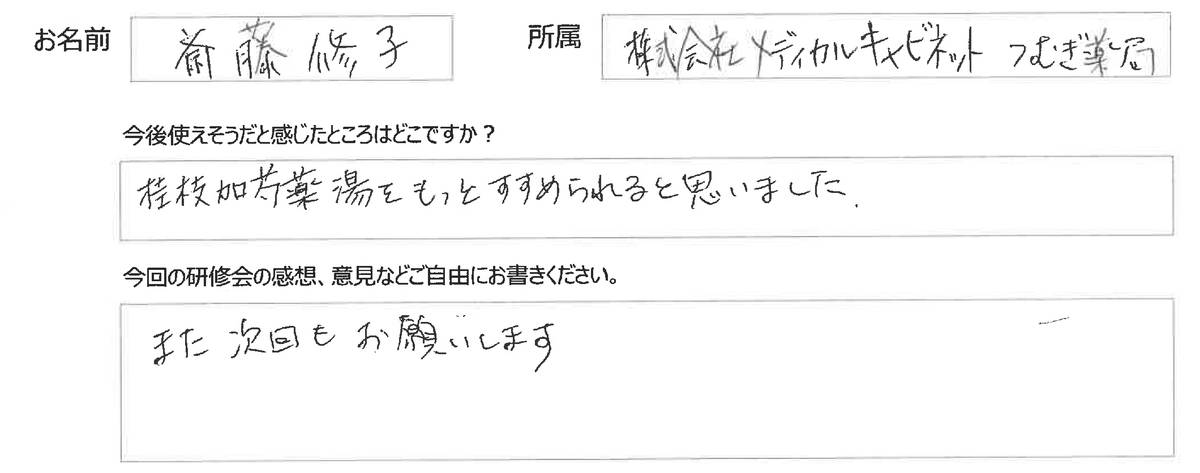 お名前 斎藤修子 所属 株式会社メディカルキャビネット つむぎ薬局
今後使えそうだと感じたところはどこですか?
桂枝加芍薬湯をもっとすすめられると思いました.
今回の研修会の感想、意見などご自由にお書きください。
また次回もお願いします